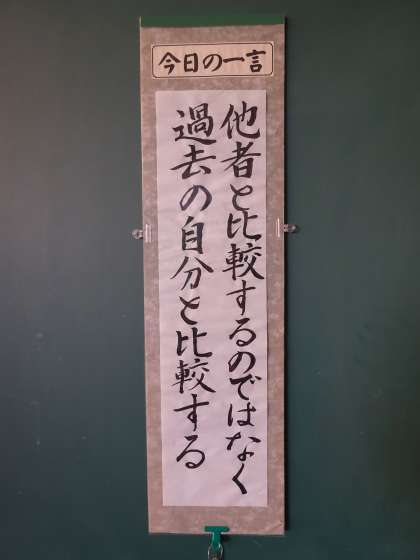 今日の一言
他者と比較するのではなく
過去の自分と比較する